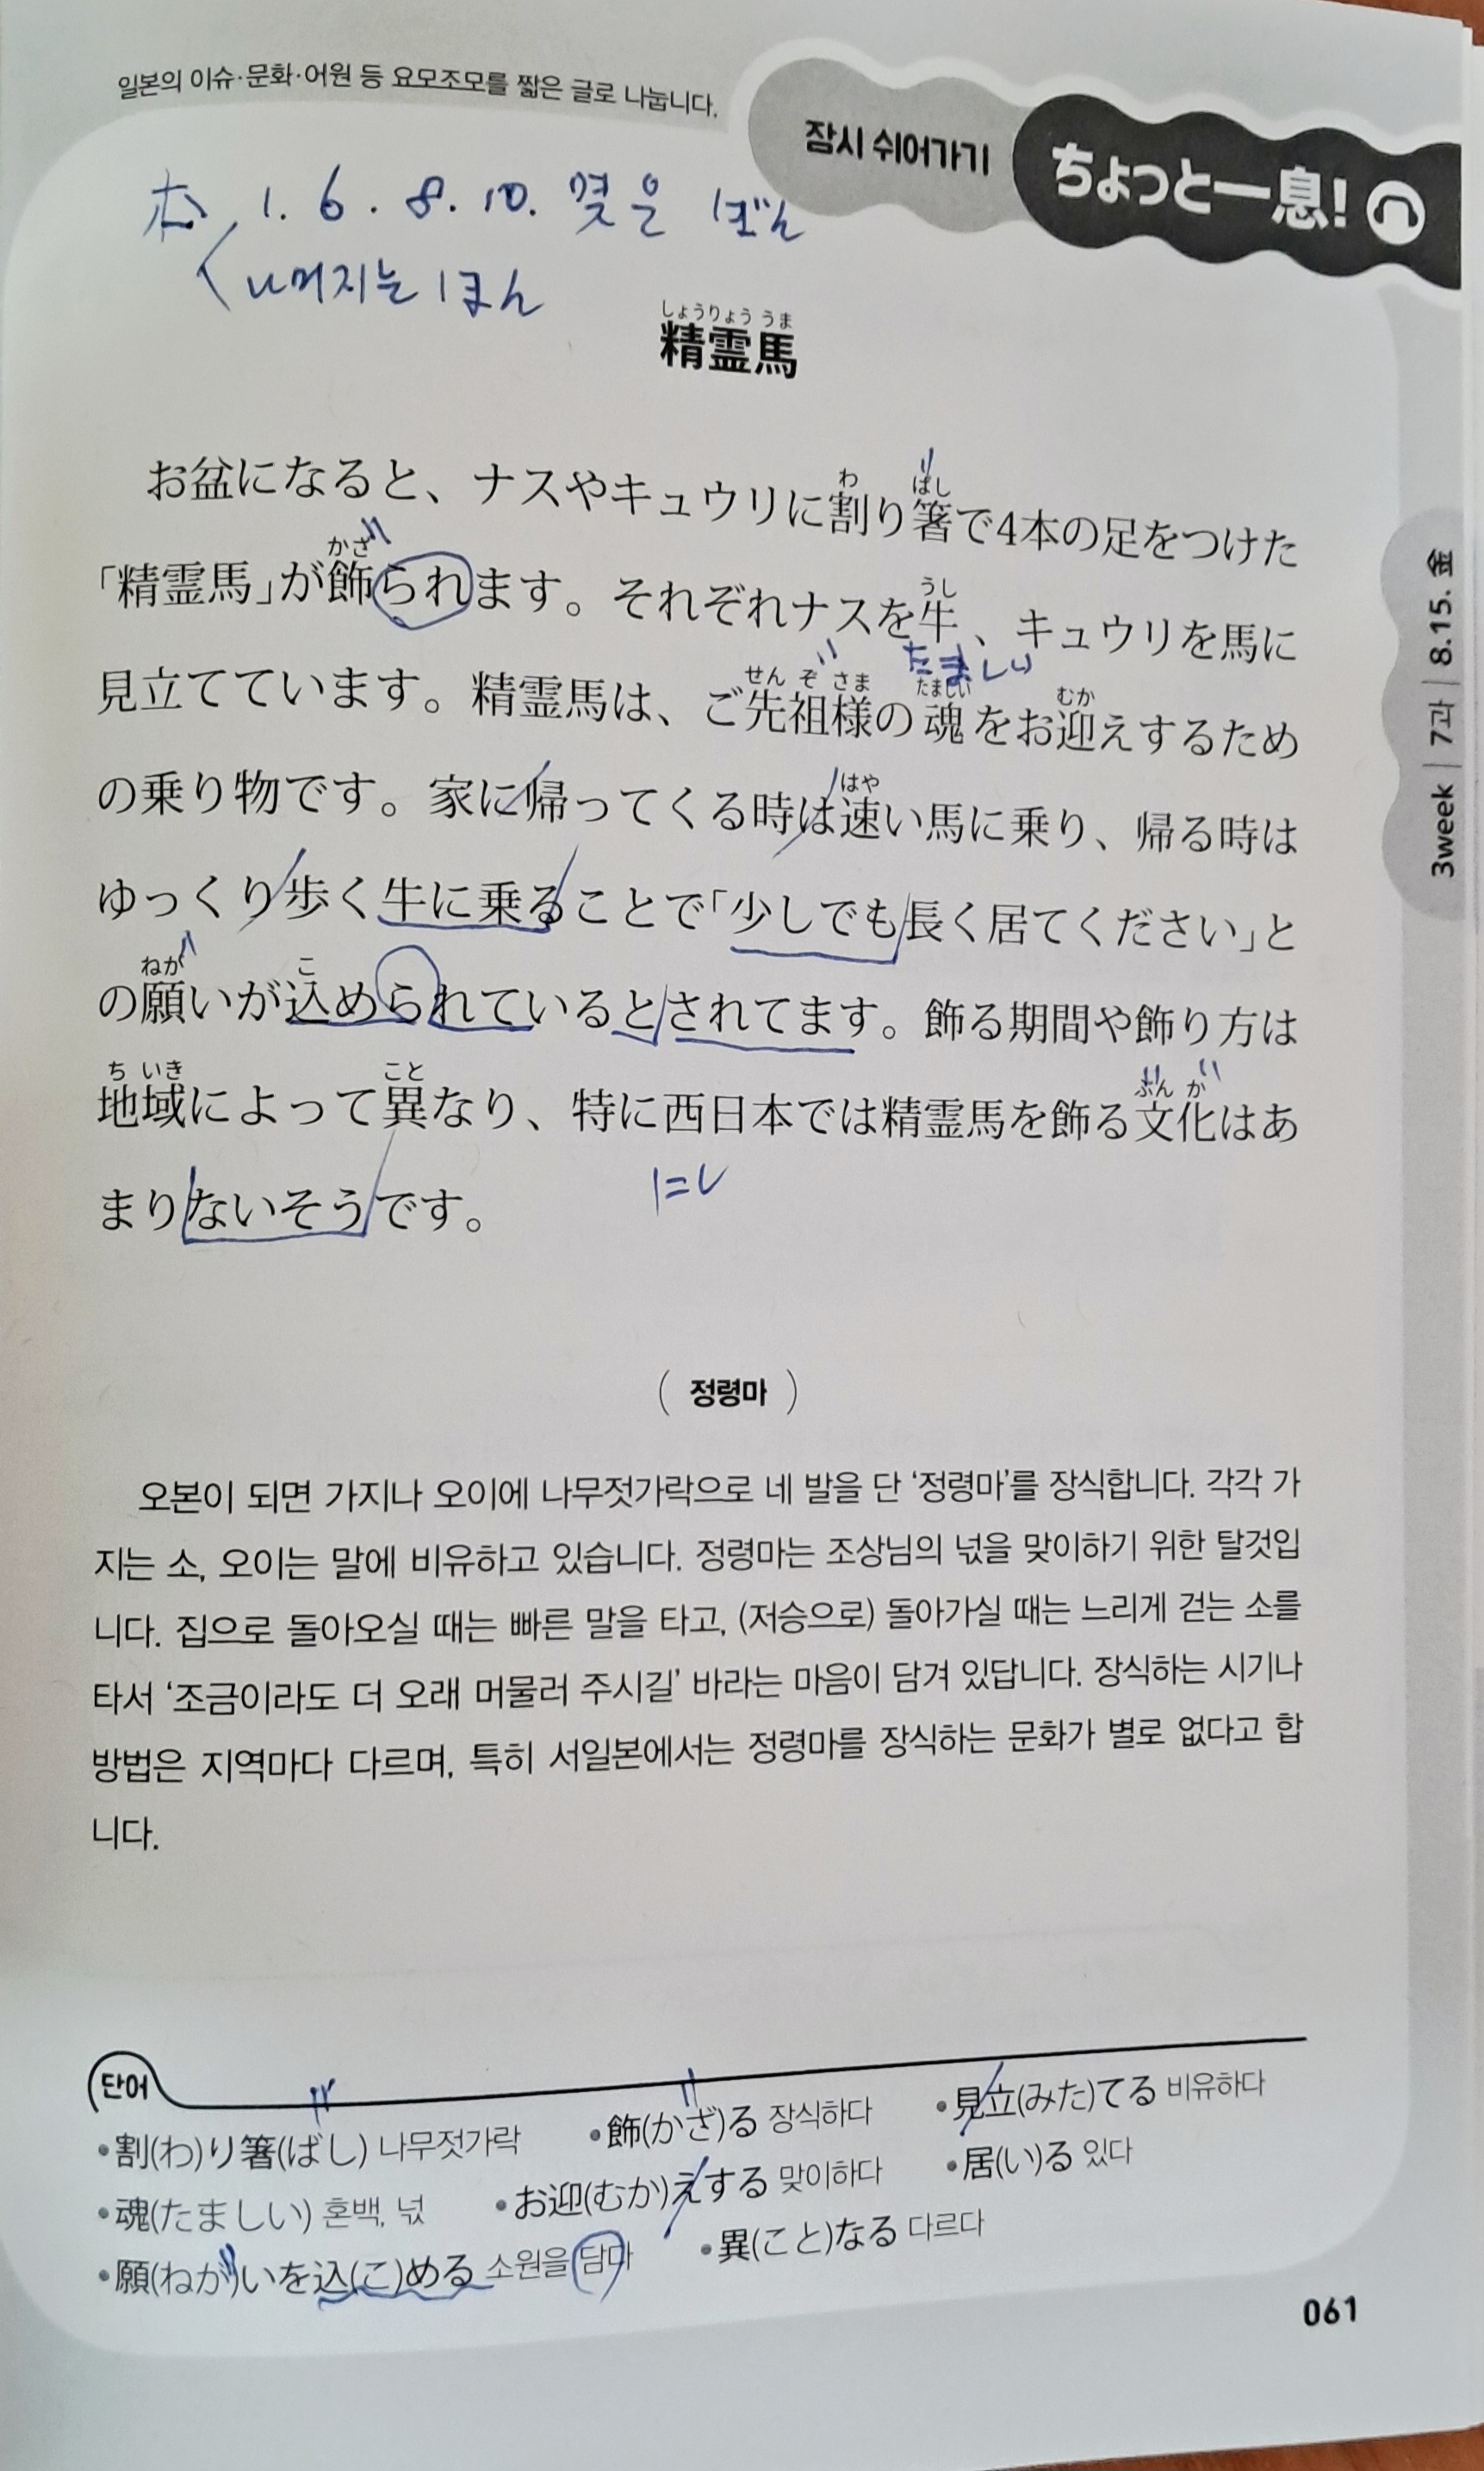 일본의 이슈·문화·어원 등 요모조모를 짧은 글로 나눕니다.
잠시 쉬어가기
ちょっと一息!
本 1. 6. 8. 10. 몇은 ぼん
나머지는 ほん
しょうりょう うま
精霊馬
わ ばし
お盆になると、ナスやキュウリに割り箸で4本の足をつけた
かざ うし
「精霊馬」が飾られます。それぞれナスを牛、キュウリを馬に
たましい
せん ぞ さま たましい むか
見立てています。精霊馬は、ご先祖様の魂をお迎えするため
はや
の乗り物です。家に帰ってくる時は速い馬に乗り、帰る時は
ゆっくり歩く牛に乗ることで「少しでも長く居てください」と
ねが こ
の願いが込められているとされてます。飾る期間や飾り方は
ち いき こと ぶん か
地域によって異なり、特に西日本では精霊馬を飾る文化はあ
にし
まりないそうです。
( 정령마 )
오본이 되면 가지나 오이에 나무젓가락으로 네 발을 단 ‘정령마’를 장식합니다. 각각 가
지는 소, 오이는 말에 비유하고 있습니다. 정령마는 조상님의 넋을 맞이하기 위한 탈것입
니다. 집으로 돌아오실 때는 빠른 말을 타고, (저승으로) 돌아가실 때는 느리게 걷는 소를
타서 ‘조금이라도 더 오래 머물러 주시길’ 바라는 마음이 담겨 있답니다. 장식하는 시기나
방법은 지역마다 다르며, 특히 서일본에서는 정령마를 장식하는 문화가 별로 없다고 합
니다.
단어
•割(わ)り箸(ばし) 나무젓가락 •飾(かざ)る 장식하다 •見立(みた)てる 비유하다
•魂(たましい) 혼백, 넋 •お迎(むか)えする 맞이하다 •居(い)る 있다
•願(ねが)いを込(こ)める 소원을 담다 •異(こと)なる 다르다
061
3week | 7과 | 8.15. 金